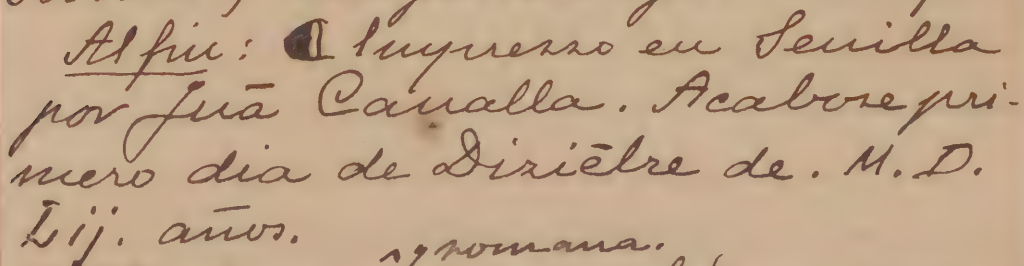 Al fin: ¶ Impresso en Seuilla
por Juā Canalla. Acabose pri-
mero dia de Diziēbre de. M. D.
Lij. años.
romana.